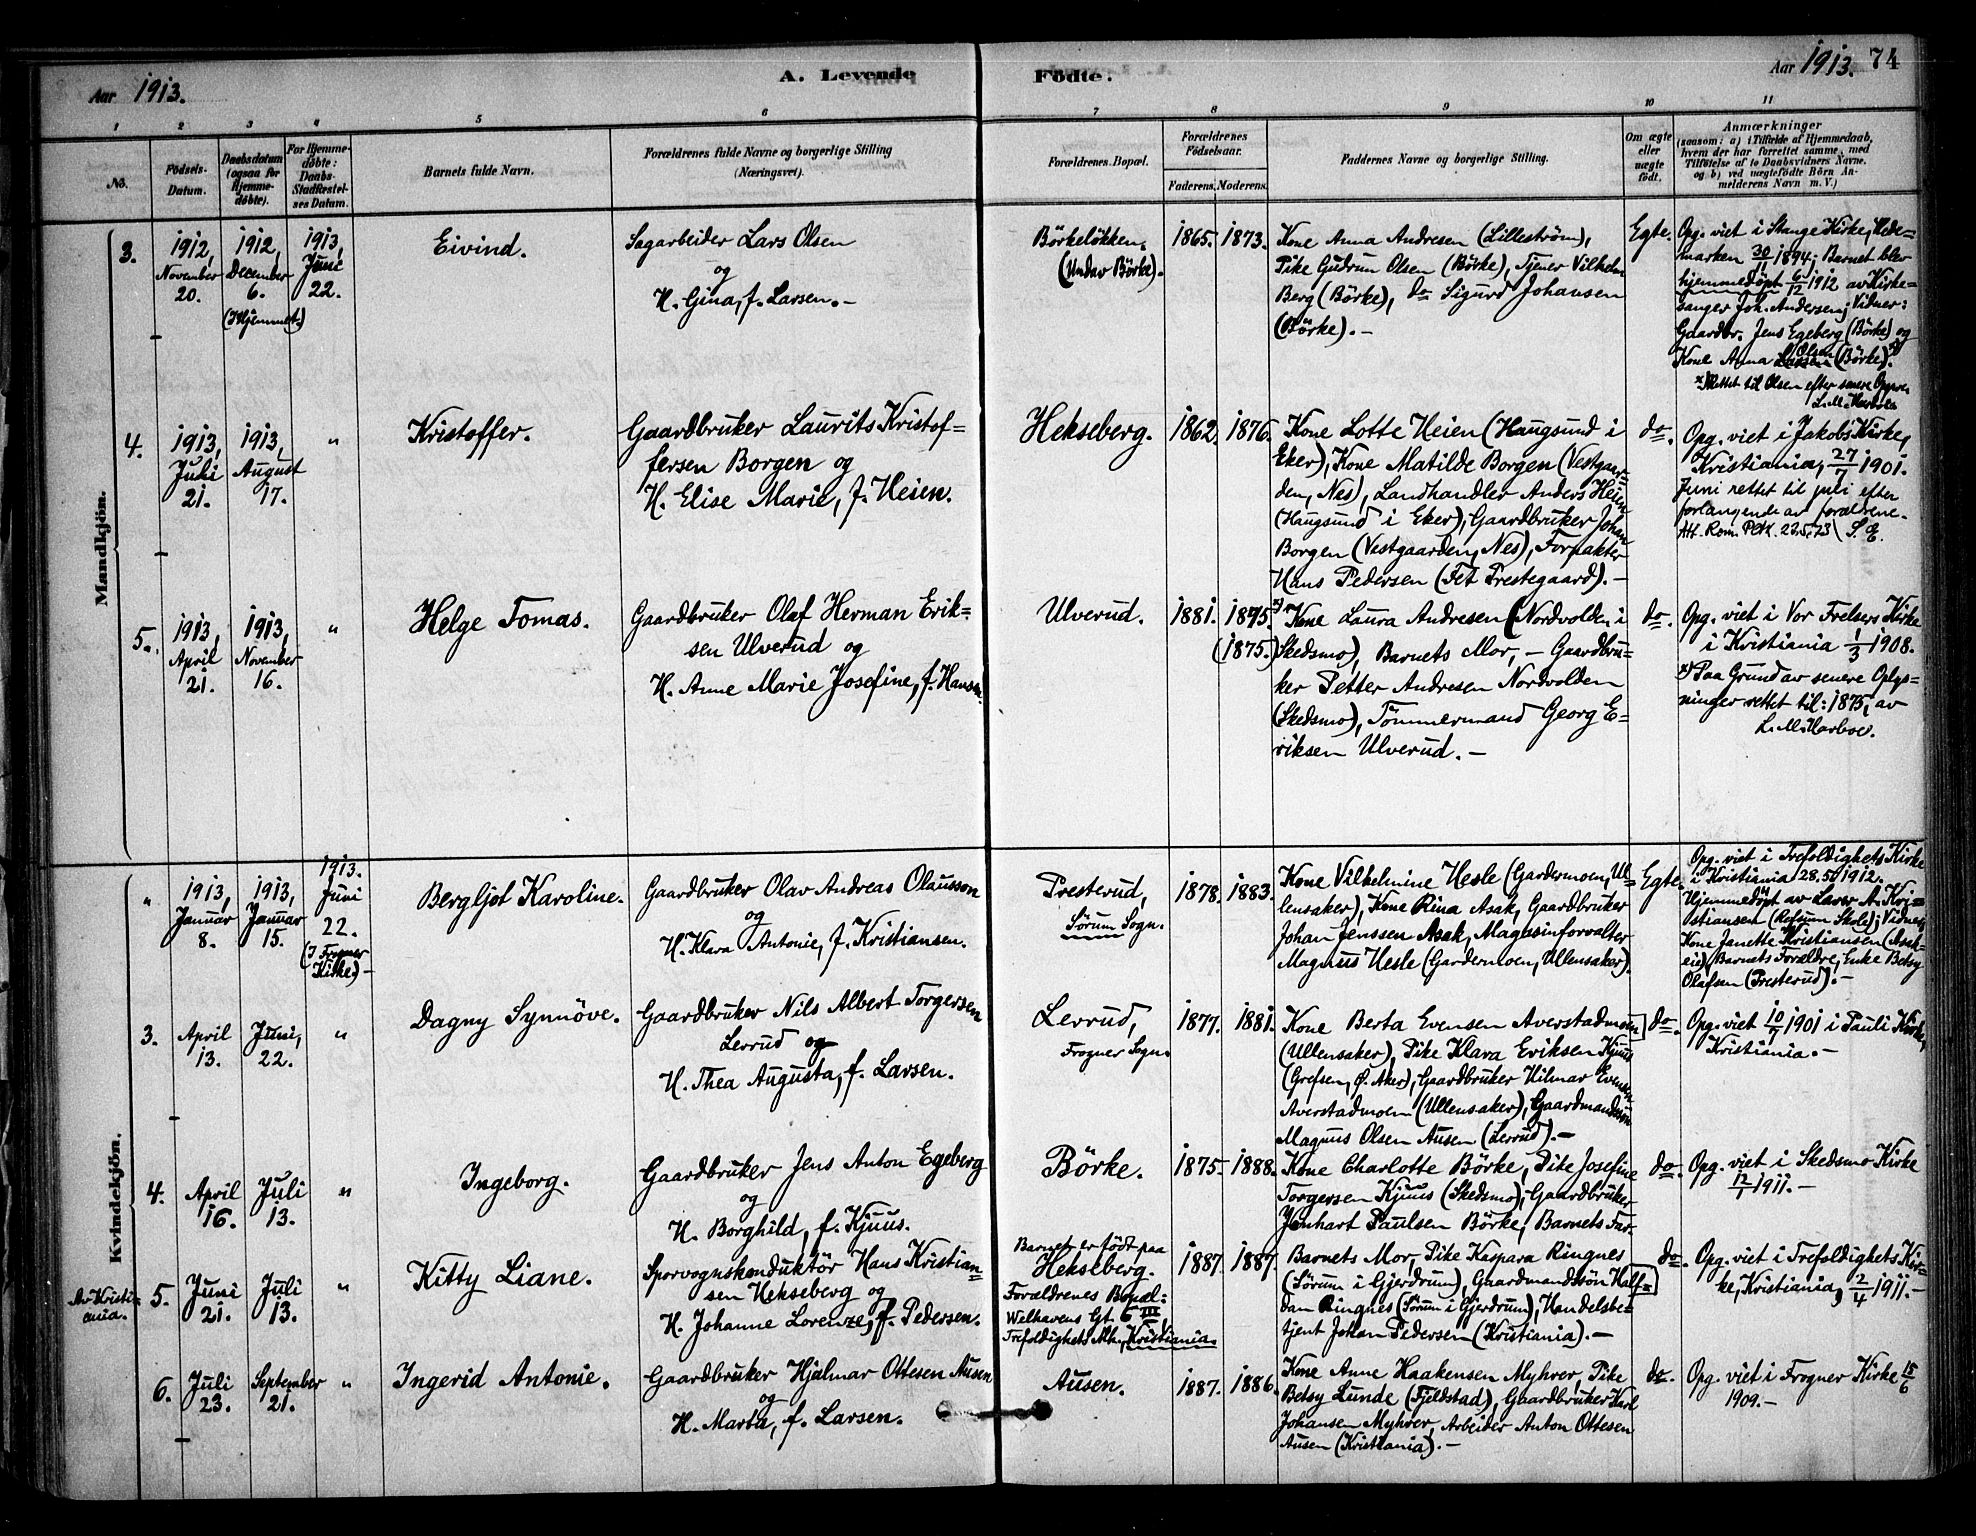 Aar 1913.
A. Levende
Födte.
Aar 1913. 74
1 2 3 4 5 6 7 8 9 10 11
No.
Födsels-
Datum.
Daabsdatum
(ogsaa for
Hjemme-
döbte).
For Hjemme-
döbte:
Daabs-
Stadfæstel-
ses Datum.
Barnets fulde Navn.
Forældrenes fulde Navne og borgerlige Stilling
(Næringsvei).
Forældrenes Bopæl.
Forældrenes
Födselsaar.
Faderens. Moderens.
Faddernes Navne og borgerlige Stilling.
Om ægte
eller
uægte
födt.
Anmærkninger
(saasom: a) i Tilfælde af Hjemmedaab,
hvem der har forrettet samme, med
Tilföielse af to Daabsvidners Navne,
og b) ved uægtefödte Börn An-
melderens Navn m. V.)
Mandkjön.
3.
1912,
November
20.
1912,
December
6.
(I Hjemmet.)
1913,
Juni
22.
Eivind.
Sagarbeider Lars Olsen
og
H. Gina, f. Larsen. -
Börkelökken,
(Under Börke).
1865. 1873.
Kone Anna Andresen (Lilleström),
Pike Gudrun Olsen (Börke), Tjener Vilhelm
Berg (Börke), do Sigurd Johansen
(Börke). -
Egte.
Opg. viet i Stange Kirke, Hede=
marken 30/11 1894; Barnet blev
hjemmedöpt 6/12 1912 av Kirke=
sanger Joh. Andersen; Vidner:
Gaardbr. Jens Egeberg (Börke) og
Kone Anna Larsen Olsen x) (Börke).
x) Rettet til Olsen efter senere Opgave
L. M. Harboe
4.
1913,
Juli
21.
1913,
August
17.
"
Kristoffer.
Gaardbruker Laurits Kristof=
fersen Borgen og
H. Elise Marie, f. Heien.
Hekseberg.
1862. 1876.
Kone Lotte Heien (Haugsund i
Eker), Kone Matilde Borgen (Vestgaar=
den, Nes), Landhandler Anders Heien
(Haugsund i Eker), Gaardbruker Johan
Borgen (Vestgaarden, Nes), Forpakter
Hans Pedersen (Fet Prestegaard). -
do.
Opg. viet i Jakobs Kirke,
Kristiania, 27/7 1901.
Juni rettet til juli efter
forlangende av forældrene.
Att. Rom. PCK. 22.5.23 S. E.
5.
1913,
April
21.
1913,
November
16.
"
Helge Tomas.
Gaardbruker Olaf Herman Erik=
sen Ulverud og
H. Anne Marie Josefine, f. Hansen.
Ulverud.
1881. 1875. x)
(1875.)
Kone Laura Andresen (Nordvolden i
Skedsmo), Barnets Mor, - Gaardbru=
ker Petter Andresen Nordvolden
(Skedsmo), Tömmermand Georg E=
riksen Ulverud. -
do.
Opg. viet i Vor Frelsers Kirke
i Kristiania 1/3 1908.
x) Paa Grund av senere Oplys=
ninger rettet til: 1875, av
L. M. Harboe.
Kvindekjön.
"
1913,
Januar
8.
1913,
Januar
15.
1913.
Juni
22.
(I Frogner
Kirke) -
Bergljot Karoline.
Gaardbruker Olav Andreas Olausson
og
H. Klara Antonie, f. Kristiansen.
Presterud,
Sörum Sogn.
1878. 1883.
Kone Vilhelmine Hesle (Gardermoen, Ul=
lensaker), Kone Rina Asak, Gaardbruker
Johan Jenssen Asak, Magasinforvalter
Magnus Hesle (Gardermoen, Ullensaker).
Egte.
Opg. viet i Trefoldighets Kirke
i Kristiania 28.5. 1912.
Hjemmedöpt av Lærer A. Kri=
stiansen (Refsum Skole); Vidner:
Kone Janette Kristiansen (Asak=
eie), Barnets Forældre, Enke Betsy
Olafsen (Presterud). -
3.
April
13.
Juni,
22.
"
Dagny Synnöve.
Gaardbruker Nils Albert Torgersen
Levrud og
H. Thea Augusta, f. Larsen.
Levrud,
Frogner Sogn.
1877. 1881.
Kone Berta Evensen Averstadmoen
(Ullensaker), Pike Klara Eriksen Kjuus
(Grefsen, Ö. Aker), Gaardbruker Hilmar Evensen
Averstadmoen (Ullensaker), Gaardmandssön
Magnus Olsen Ausen (Levrud). -
do.
Opg. viet 10/7 1901 i Pauli Kirke,
Kristiania. -
4.
April
16.
Juli
13.
"
Ingeborg.
Gaardbruker Jens Anton Egeberg
og
H. Borghild, f. Kjuus.
Börke.
1875. 1888.
Kone Charlotte Börke, Pike Josefine
Torgersen Kjuus (Skedsmo), Gaardbruker
Jenhart Paulsen Börke, Barnets Far.
do.
Opg. viet i Skedsmo Kirke
12/1 1911. -
Av Kristi=
ania.
5.
Juni
21.
Juli
13.
"
Kitty Liane.
Sporvognskonduktör Hans Kristian=
sen Hekseberg og
H. Johanne Lorenze, f. Pedersen.
Barnet er födt paa
Hekseberg.
Forældrenes Bopæl:
Welhavens Gt. 6 III
Trefoldighets Mh., Kristiania.
1887. 1887.
Barnets Mor, Pike Kaspara Ringnes
(Sörum i Gjerdrum), Gaardmandssön Half=
dan Ringnes (Sörum i Gjerdrum), Handelsbe=
tjent Johan Pedersen (Kristiania). -
do.
Opg. viet i Trefoldighets Kir=
ke, Kristiania, 2/4 1911. -
6.
Juli
23.
September
21.
"
Ingerid Antonie.
Gaardbruker Hjalmar Ottesen Ausen
og
H. Marta, f. Larsen.
Ausen.
1887. 1886.
Kone Anne Haakensen Myhrer, Pike
Betsy Lunde (Fjeldstad), Gaardbruker Karl
Johansen Myhrer, Arbeider Anton Ottesen
Ausen (Kristiania). -
do.
Opg. viet i Frogner Kirke 15/6
1909. -